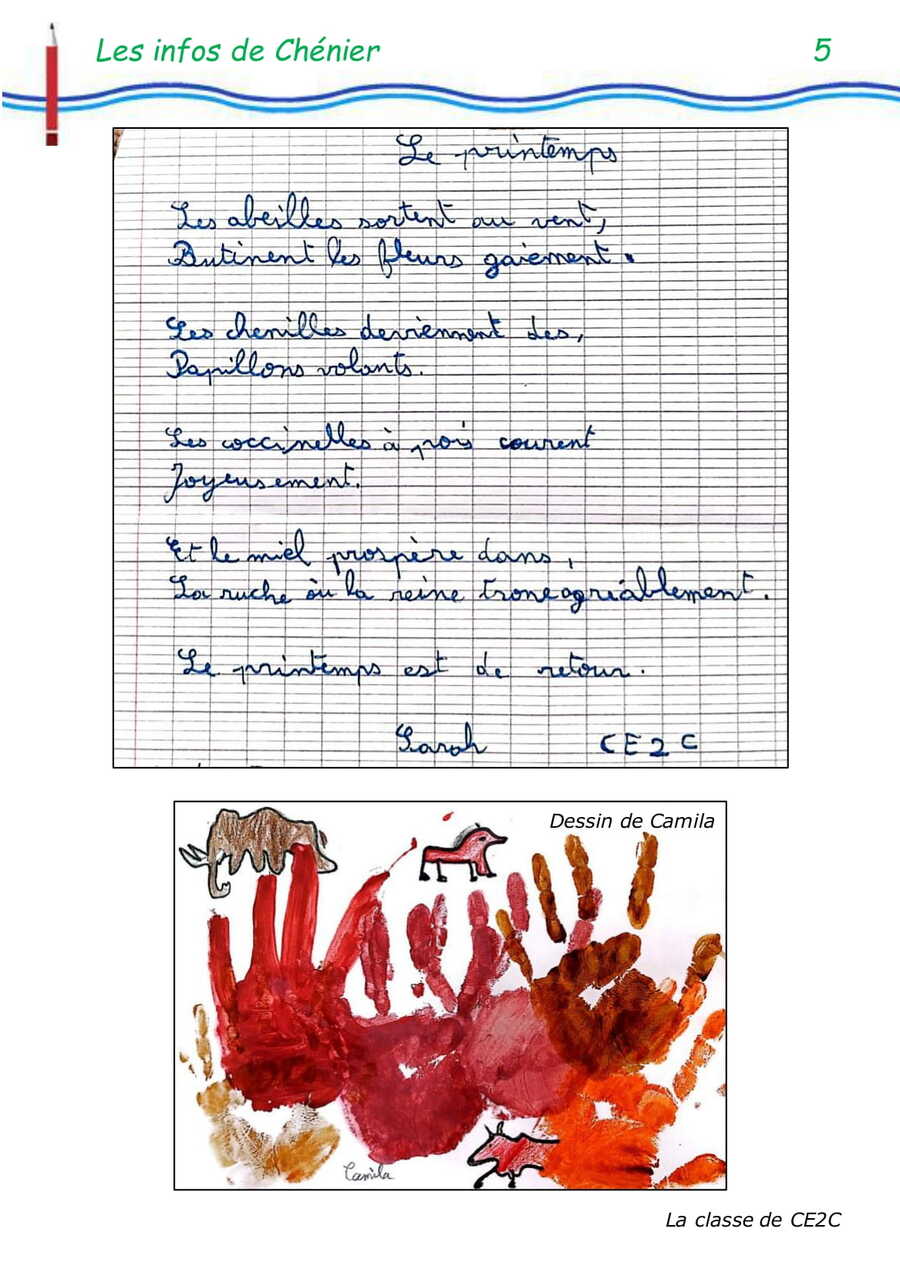 Les infos de Chénier 5
Le printemps
Les abeilles sortent au vent,
Butinent les fleurs gaiement.
Les chenilles deviennent des,
Papillons volants.
Les coccinelles à pois courent
Joyeusement.
Et le miel prospère dans,
La ruche où la reine trone agréablement.
Le printemps est de retour.
Sarah CE2C
Dessin de Camila
Camila
La classe de CE2C